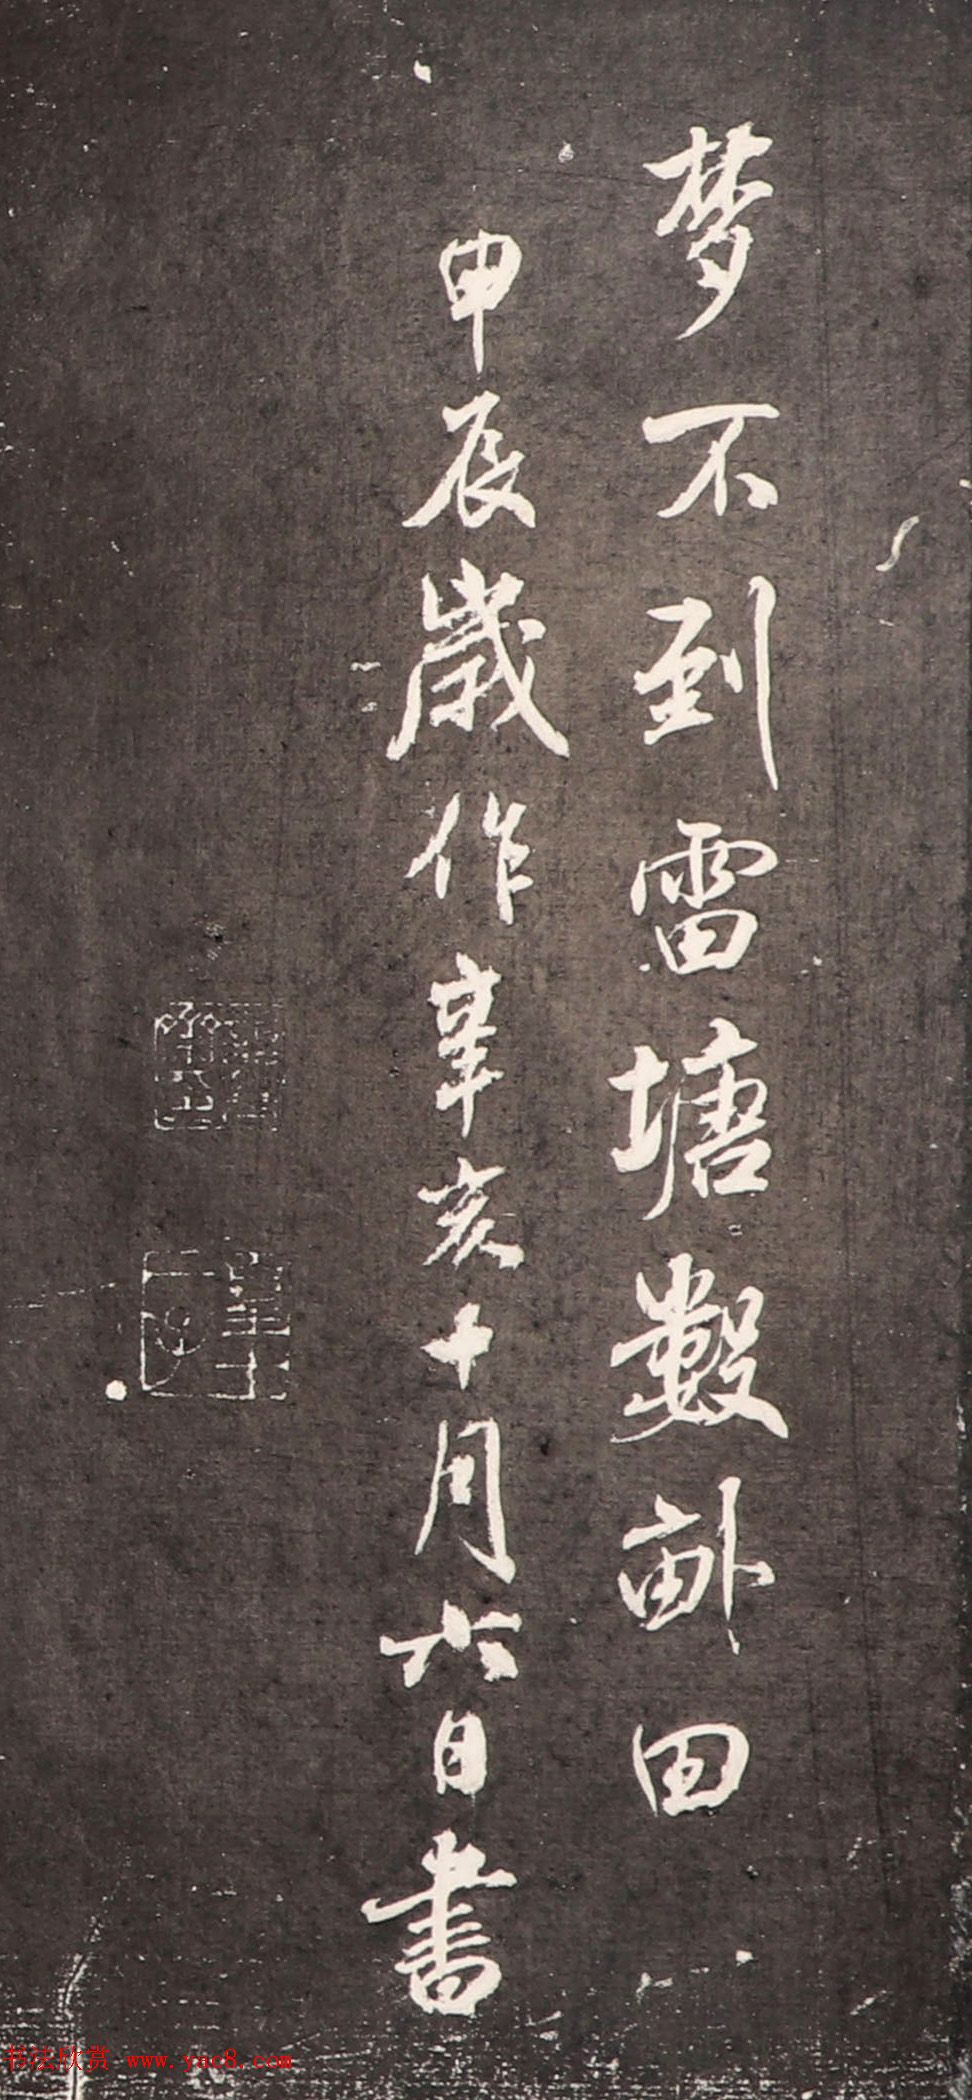 梦不到雷塘數畝田
甲辰歲作辛亥十月六日書
书法欣赏 www.yac8.com